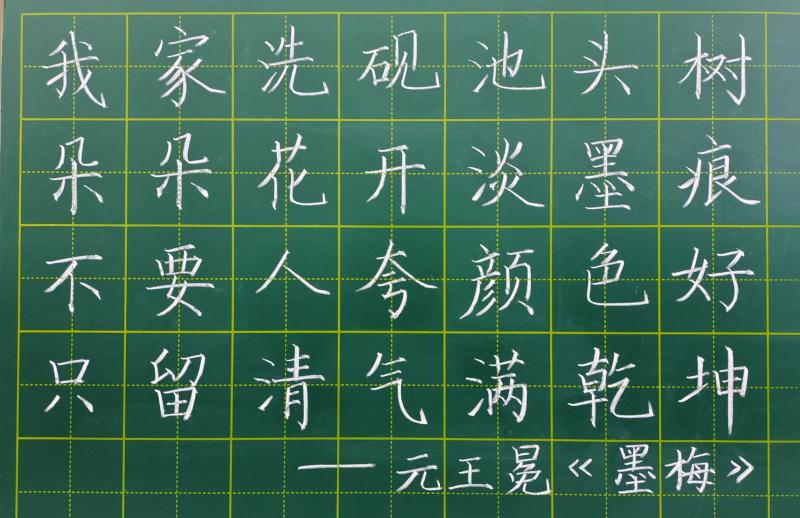 我家洗砚池头树
朵朵花开淡墨痕
不要人夸颜色好
只留清气满乾坤
——元王冕《墨梅》